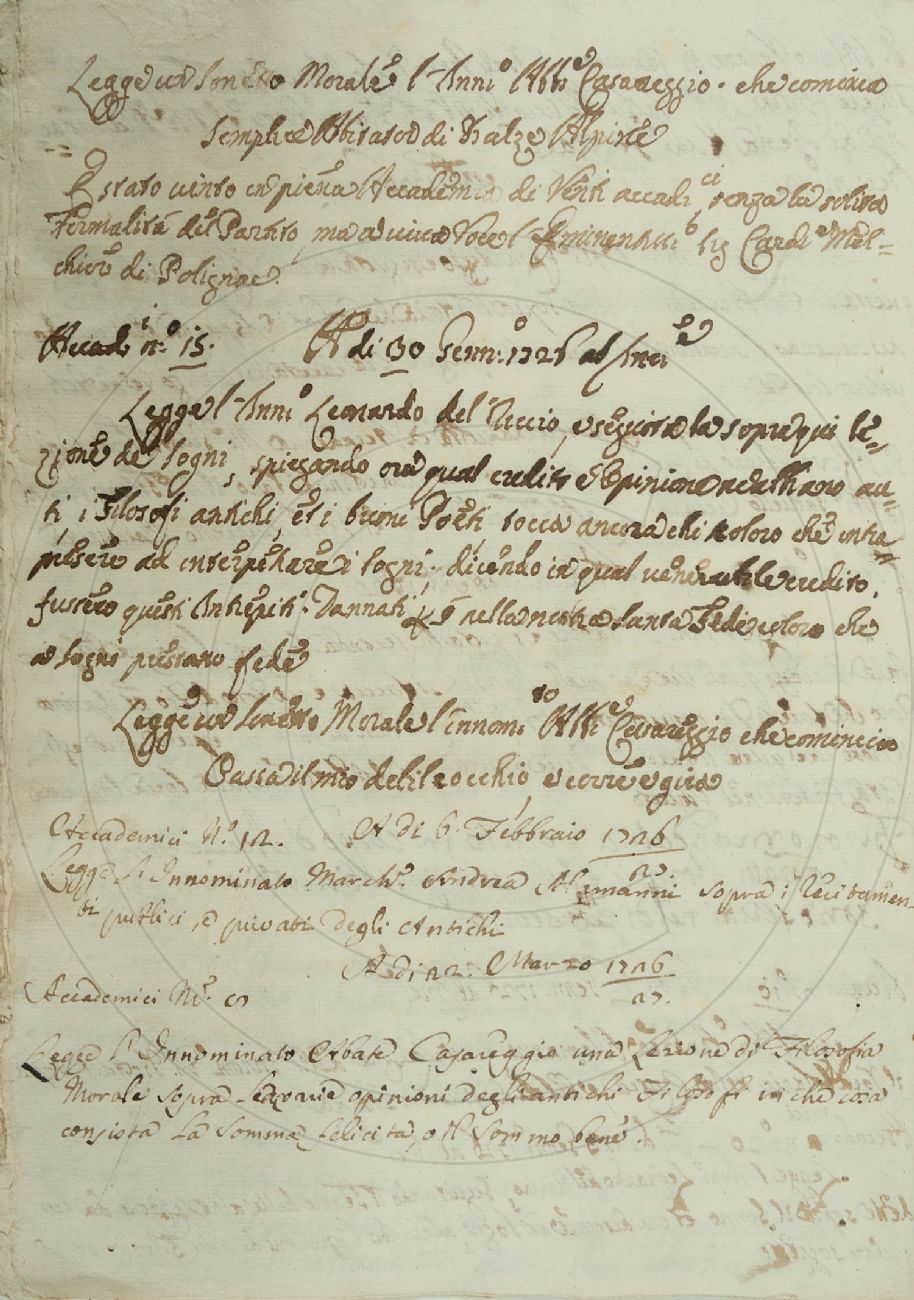 Legge un Sonetto Morale l'Inn.º Abb.e Casareggio. che comincia
Semplice Abitator di balze Alpine
È stato vinto in piena Accademia di Venti accad.ci senza la solita
Formalità del Partito, ma a viva Voce l'Eminentiss.º Sig Card.e Mel=
chior di Polignac.
Accad.i n.º 15. A di 30 Genn.º 1726 ab Inc.e
Legge l'Inn.º Leonardo del Riccio, e seguita la sopra qui le=
zione de Sogni, spiegando ora qual credito e Opinione n'abbiano au=
ti, i Filosofi antichi, et i buoni Poeti, tocca ancora chi coloro che intra=
presero ad interpetrare i Sogni; dicendo in qual venerabile credito,
fussero questi Intepiti. Dannati nella nostra Santa Fede coloro che
a Sogni prestano fede
Legge un Sonetto Morale l'Innomi.to Abb.e Casareggio che comincia
Passa il mio debil occhio, e corre e
Accademici N.º 12. A di 6. Febbraio 1726
27
Legge l'Innominato March.e Andrea Alamanni sopra i Recitamen-
ti publici, e privati degli Antichi
A di 22. Marzo 1726
27.
Accademici N.º
Legge l'Innominato Abate Casareggio una Lezione di Filosofia
Morale sopra le varie opinioni degli antichi Filosofi in che cosa
consista la Somma felicità, o il Sommo bene.